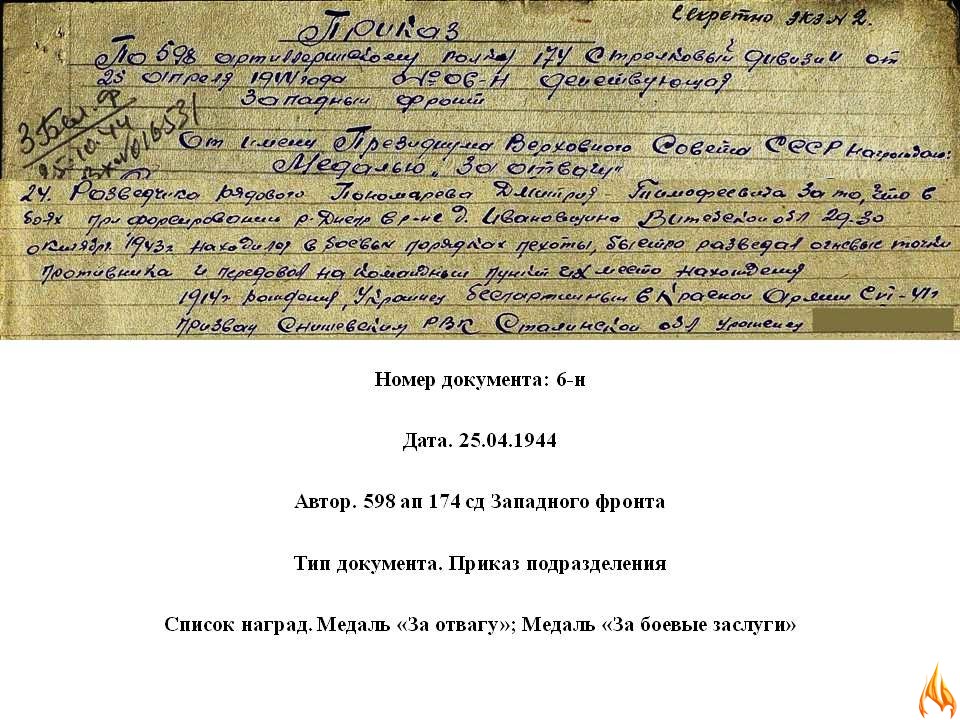 Секретно экз N 2.
Приказ
По 598 артиллерийскому полку 174 Стрелковый дивизии от
25 апреля 1944 года № 06-Н действующая
Западный фронт
3 Бел. Ф
От имени Президиума Верховного Совета СССР награждаю:
Медалью „За отвагу“
24. Разведчика рядового Пономарева Дмитрия Тимофеевича За то, что в
боях при форсировании р. Днепр в р-не д. Ивановщина Витебской обл 29-30
октября 1943г находился в боевых порядках пехоты, быстро разведал огневые точки
противника и передовал на командный пункт их место нахождения
1914г рождения, Украинец беспартийный в Красной Армии с VI-41г
призван Снижевским РВК Сталинской обл уроженец
Номер документа: 6-н
Дата. 25.04.1944
Автор. 598 ап 174 сд Западного фронта
Тип документа. Приказ подразделения
Список наград. Медаль «За отвагу»; Медаль «За боевые заслуги»